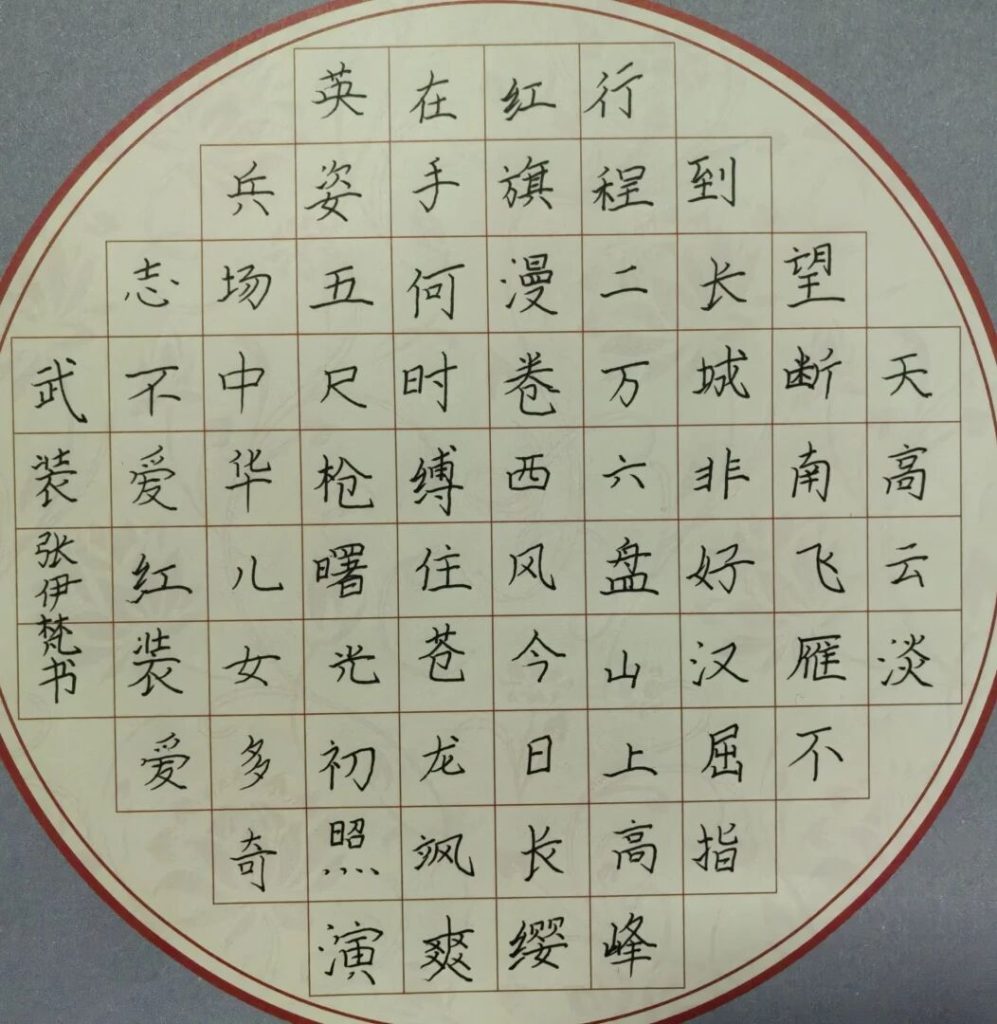 天高云淡
望断南飞雁不
到长城非好汉屈指
行程二万六盘山上高峰
红旗漫卷西风今日长缨
在手何时缚住苍龙飒爽
英姿五尺枪曙光初照演
兵场中华儿女多奇
志不爱红装爱
武装
张伊梵书